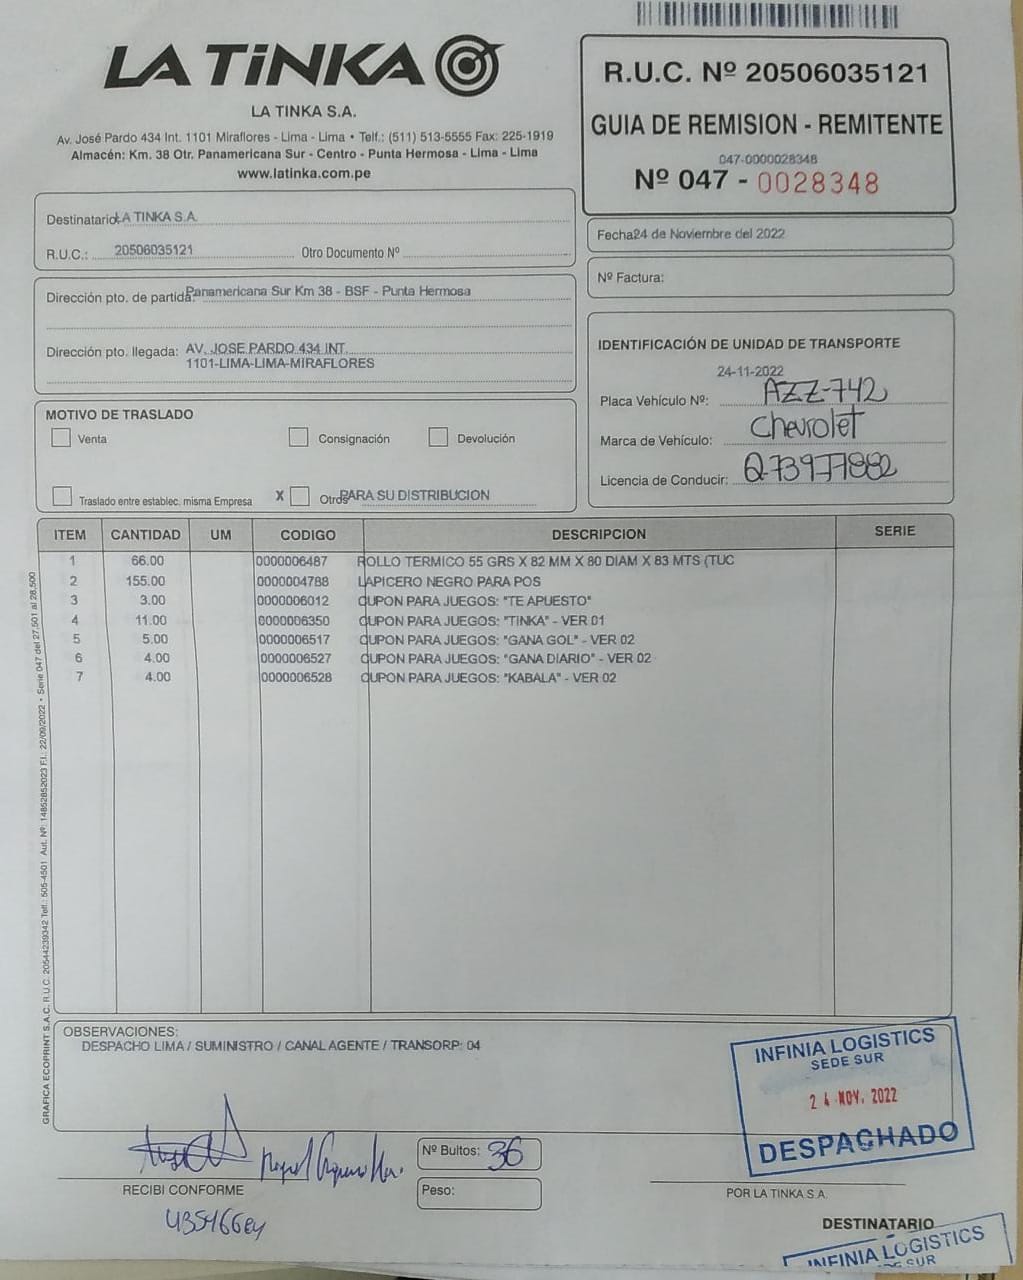 LA TiNKA
LA TINKA S.A.
Av. José Pardo 434 Int. 1101 Miraflores - Lima - Lima • Telf.: (511) 513-5555 Fax: 225-1919
Almacén: Km. 38 Otr. Panamericana Sur - Centro - Punta Hermosa - Lima - Lima
www.latinka.com.pe
R.U.C. Nº 20506035121
GUIA DE REMISION - REMITENTE
047-0000028348
Nº 047 - 0028348
Destinatario LA TINKA S.A.
R.U.C.: 20506035121 Otro Documento Nº
Fecha 24 de Noviembre del 2022
Nº Factura:
Dirección pto. de partida: Panamericana Sur Km 38 - BSF - Punta Hermosa
Dirección pto. llegada: AV. JOSE PARDO 434 INT.
1101-LIMA-LIMA-MIRAFLORES
IDENTIFICACIÓN DE UNIDAD DE TRANSPORTE
24-11-2022
Placa Vehículo Nº: AZZ-742
Marca de Vehículo: Chevrolet
Licencia de Conducir: Q73977882
MOTIVO DE TRASLADO
Venta Consignación Devolución
Traslado entre establec. misma Empresa X Otros PARA SU DISTRIBUCION
ITEM CANTIDAD UM CODIGO DESCRIPCION SERIE
1 66.00 0000006487 ROLLO TERMICO 55 GRS X 82 MM X 80 DIAM X 83 MTS (TUC
2 155.00 0000004788 LAPICERO NEGRO PARA POS
3 3.00 0000006012 CUPON PARA JUEGOS: "TE APUESTO"
4 11.00 0000006350 CUPON PARA JUEGOS: "TINKA" - VER 01
5 5.00 0000006517 CUPON PARA JUEGOS: "GANA GOL" - VER 02
6 4.00 0000006527 CUPON PARA JUEGOS: "GANA DIARIO" - VER 02
7 4.00 0000006528 CUPON PARA JUEGOS: "KABALA" - VER 02
GRAFICA ECOPRINT S.A.C. R.U.C. 20544239342 Telf.: 505-4501 Aut. Nº: 14852852023 F.I.: 22/09/2022 • Serie 047 del 27,501 al 28,500
OBSERVACIONES:
DESPACHO LIMA / SUMINISTRO / CANAL AGENTE / TRANSORP: 04
INFINIA LOGISTICS
SEDE SUR
24 NOV. 2022
DESPACHADO
Nº Bultos: 36
Peso:
RECIBI CONFORME
POR LA TINKA S.A.
DESTINATARIO
INFINIA LOGISTICS
SEDE SUR